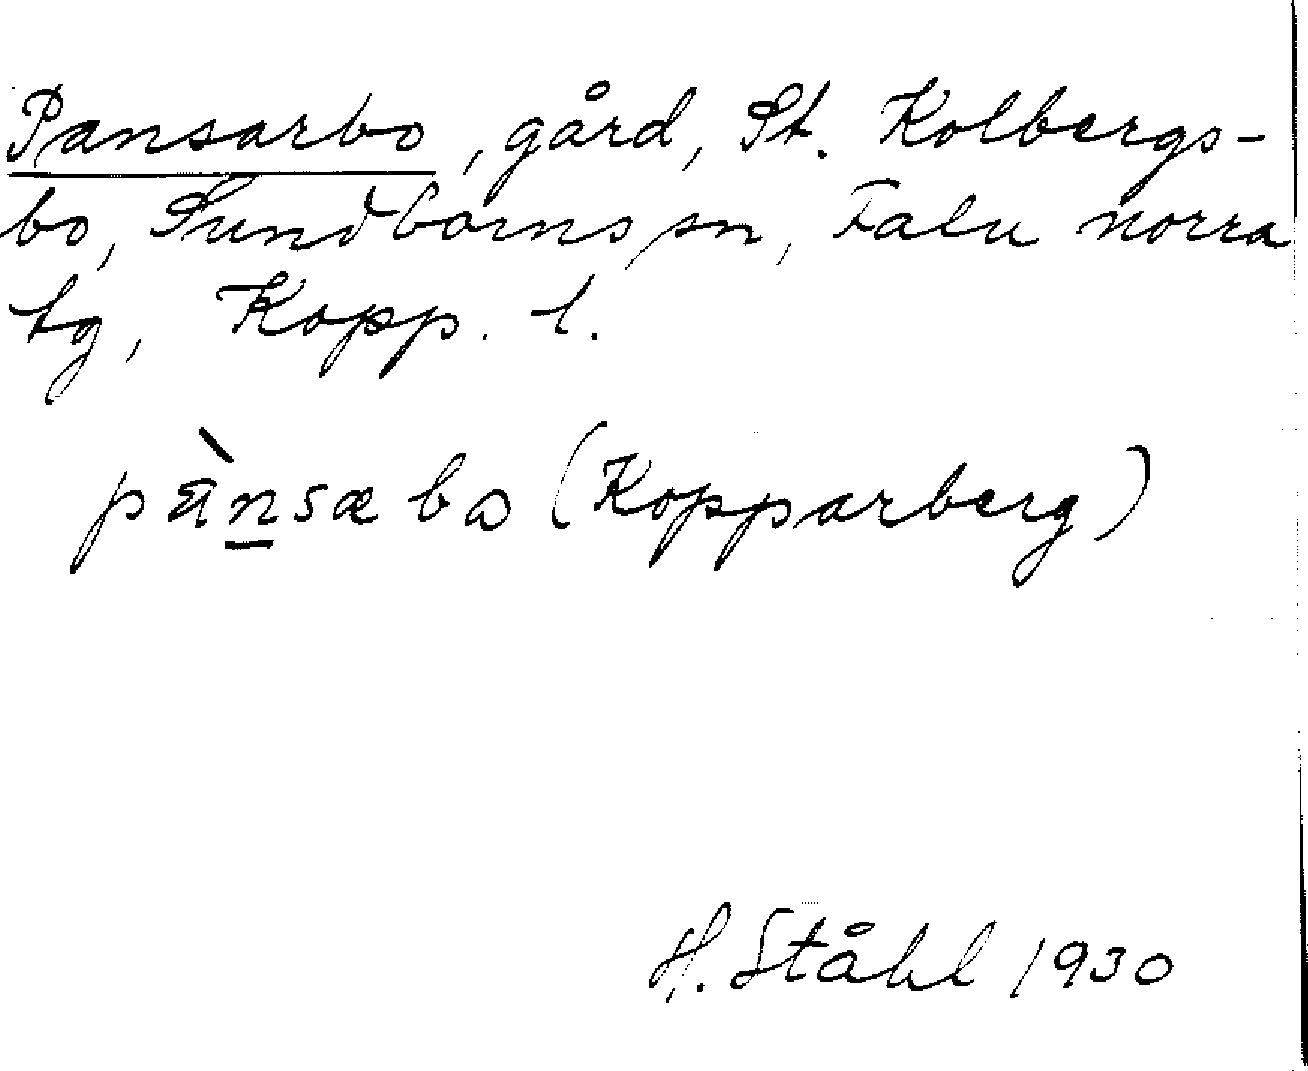 Pansarbo, gård, St. Kolbergs-
bo, Sundborns sn, Falu norra
tg, Kopp. l.
pànsæbo (Kopparberg)
H. Ståhl 1930